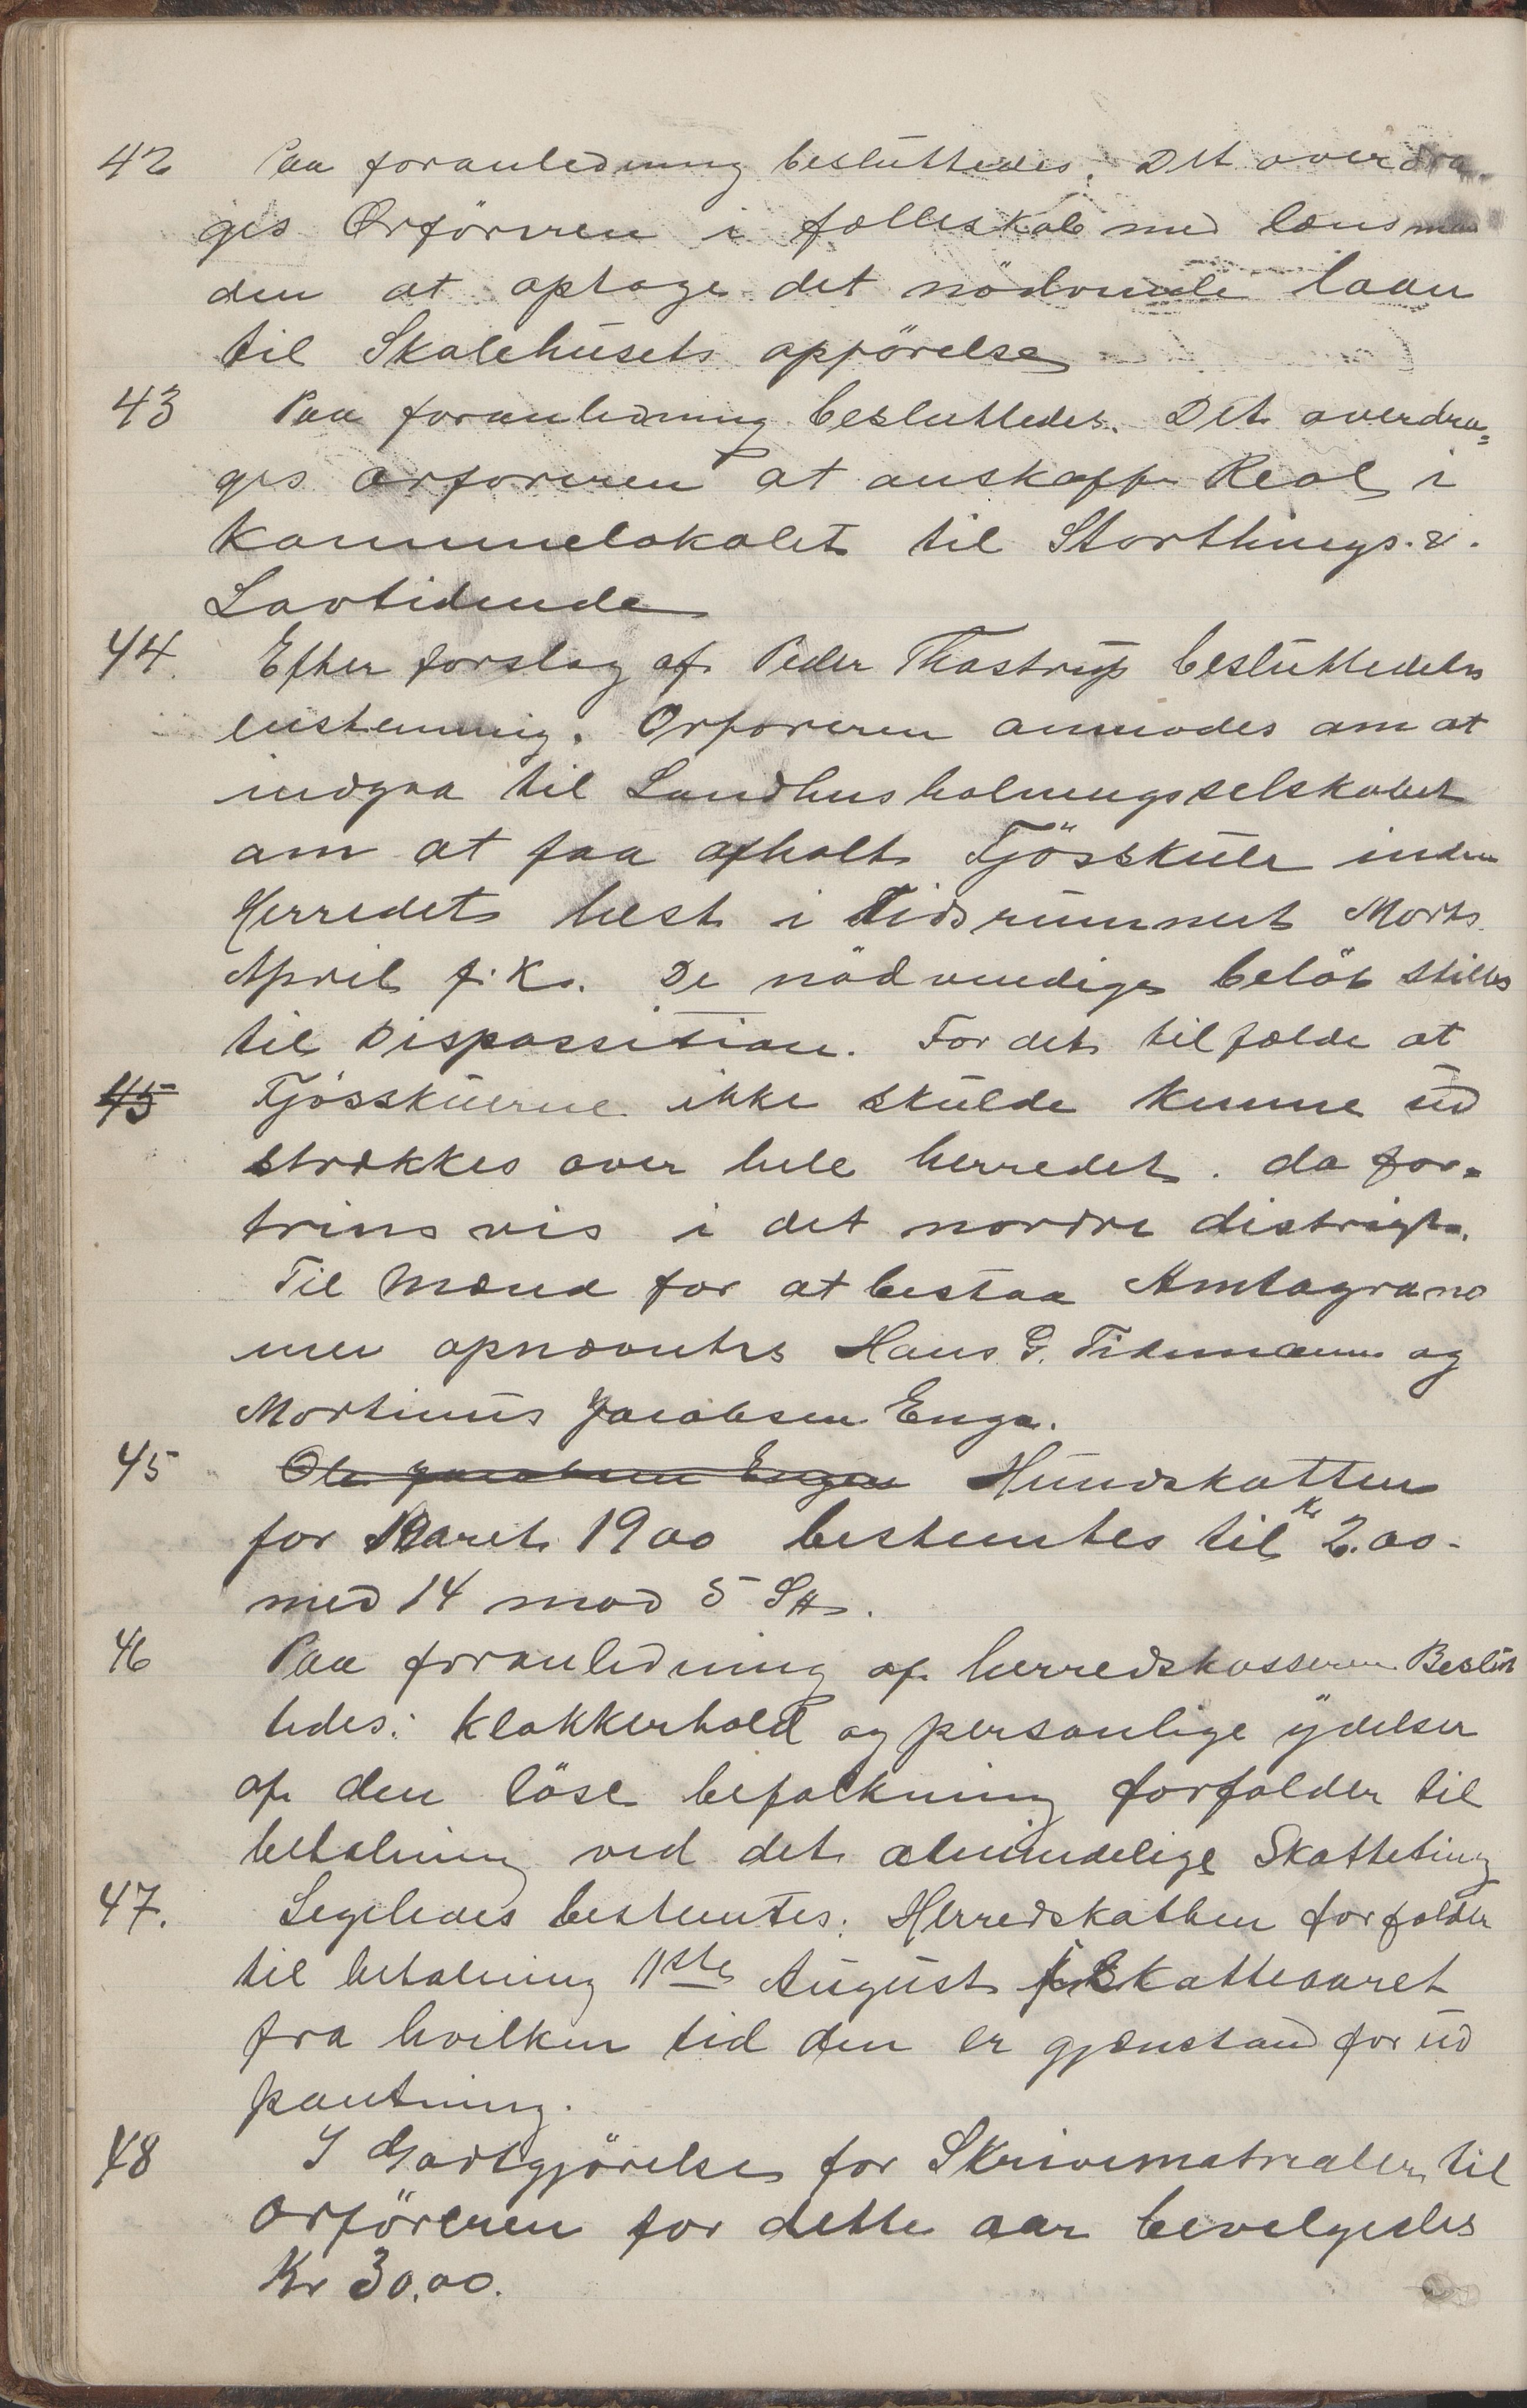 42 Paa foranledning besluttedes. Det overdra
ges Orföreren i fælleskab med lensman
den at optage det nödvende laan
til Skolehusets opförelse
43 Paa foranledning besluttedes. Det overdra=
ges orforeren at anskaffe Reol i
Kommunelokalet til Storthings. &.
Lovtidende
44. Efter forslag af Peder Thostrup besluttedes
enstemmig. Orforeren anmodes om at
indgaa til Landhusholningsselskabet
om at faa afholt Fjösskule inden
Herredet helst i Tidsrummet Marts
April f. K. De nödvendige belöb stilles
til Dispossition. For det tilfælde at
45 Fjösskuerne ikke skulde kunne ud
strækkes over hele herredet. da for=
trins vis i det nordre distrigt.
Til Mænd for at bistaa Amtagrano
men opnævntes Hans G. Tidemann og
Mortinus Jacobsen Enge.
45 Ole Jacobsen Engen Hundskatten
for Aaret 1900 bestemtes til Kr 2.00.
med 14 mod 5 St.
46 Paa foranledning af herredskasseren Beslut
tedes: Klokkerhold og personlige ydelser
af den löse befolkning forfalder til
betalning ved det almindelige Skatteting
47. Legeledes bestemtes: Herredskatten forfalder
til betalning 11ste August i Skatteaaret
fra hvilken tid den er gjenstand for ud
pantning.
48 I Godtgjörelse for Skrivematrealer til
orföreren for dette aar bevelgedes
Kr 30.00.